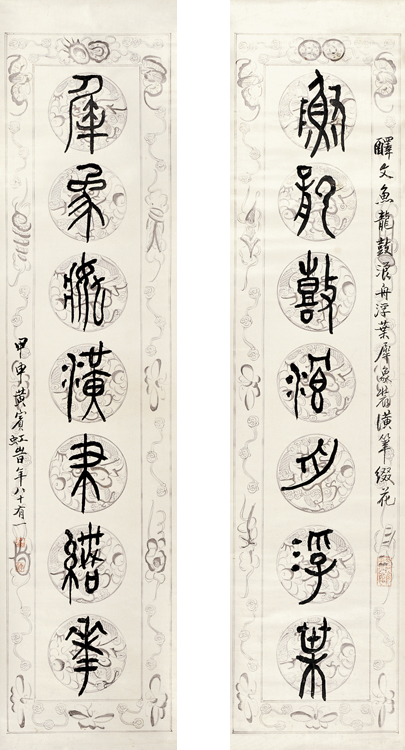 釋文魚龍鼓浪舟浮葉犀象裝潢筆綴花
魚龍鼓浪舟浮葉
犀象裝潢聿綴華
甲申黃賓虹旹年八十有一